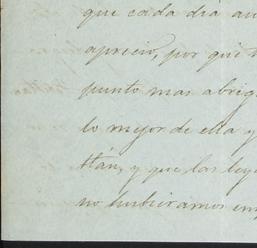 que cada dia au
aprecio, por que
punto mas abrig
lo mejor de ella y
tlán, y que las ley
no hubieramos em